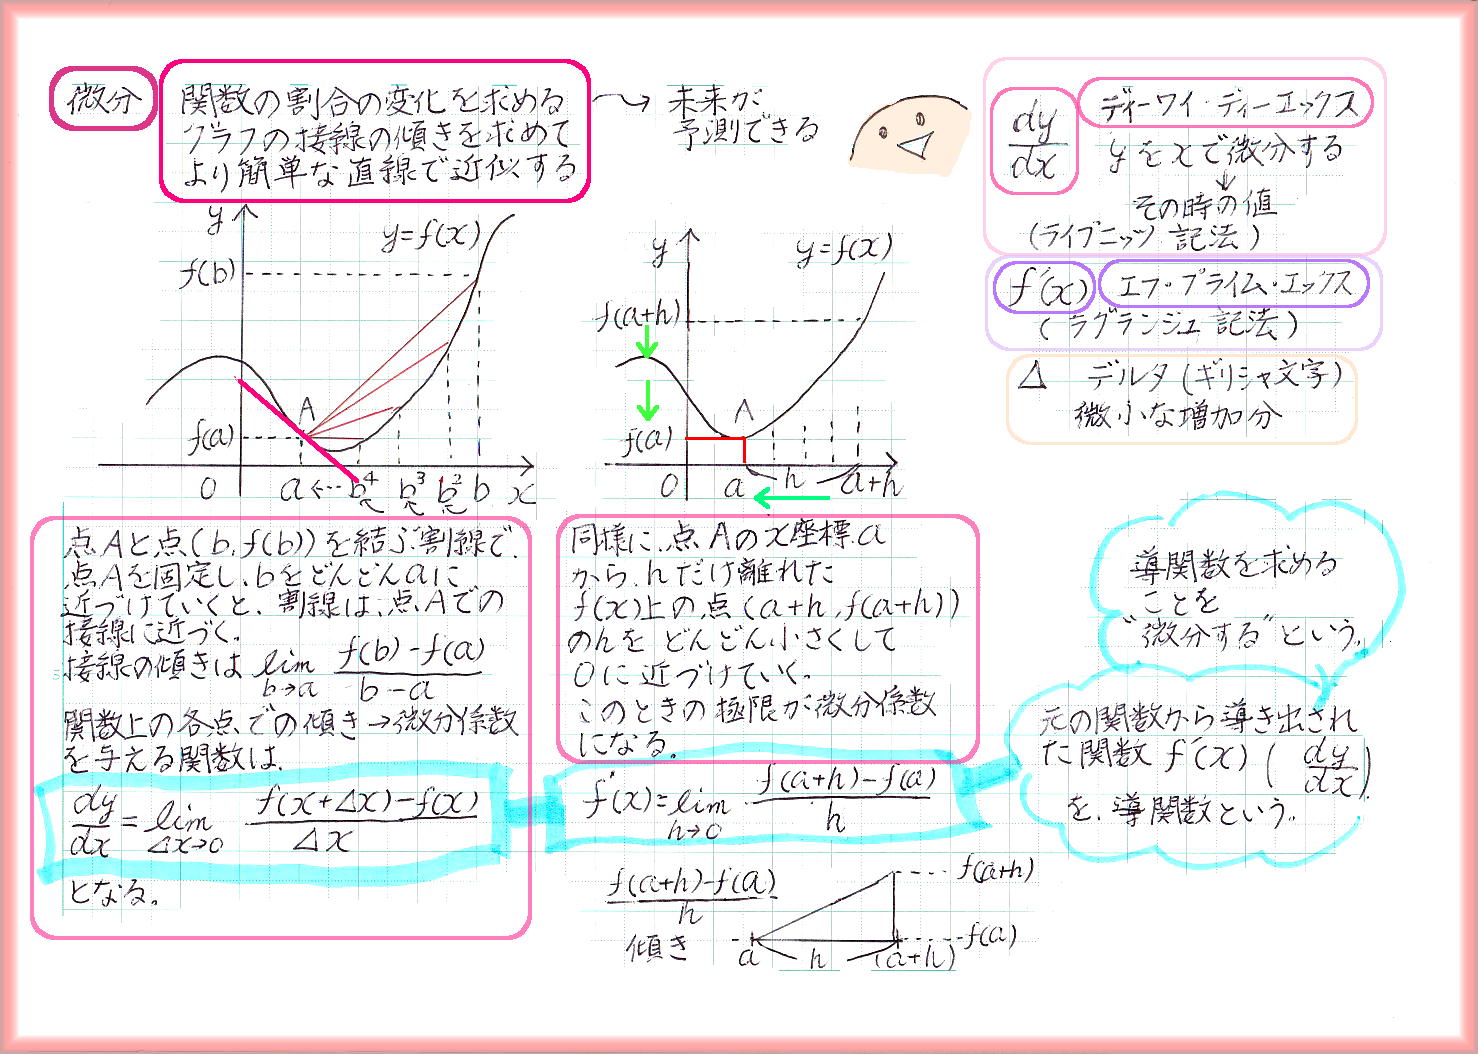 微分
関数の割合の変化を求める
グラフの接線の傾きを求めて
より簡単な直線で近似する
未来が
予測できる
dy/dx
ディーワイ・ディーエックス
yをxで微分する
↓
その時の値
(ライプニッツ 記法)
f'(x)
エフ・プライム・エックス
(ラグランジュ 記法)
Δ デルタ(ギリシャ文字)
微小な増加分
y
y=f(x)
f(b)
A
f(a)
0 a ←-- b4 b3 b2 b x
y
y=f(x)
f(a+h)
A
f(a)
0 a h a+h
点Aと点(b, f(b))を結ぶ割線で、
点Aを固定し、bをどんどんaに
近づけていくと、割線は、点Aでの
接線に近づく。
接線の傾きは lim b→a (f(b)-f(a))/(b-a)
関数上の各点での傾き→微分係数
を与える関数は、
dy/dx = lim Δx→0 (f(x+Δx)-f(x))/Δx
となる。
同様に、点Aのx座標a
から、hだけ離れた
f(x)上の点(a+h, f(a+h))
のhを どんどん小さくして
0に近づけていく。
このときの極限が微分係数
になる。
f'(x)=lim h→0 (f(a+h)-f(a))/h
(f(a+h)-f(a))/h
傾き
f(a+h)
f(a)
a h (a+h)
導関数を求める
ことを
"微分する"という。
元の関数から導き出され
た関数 f'(x) (dy/dx)
を、導関数という。